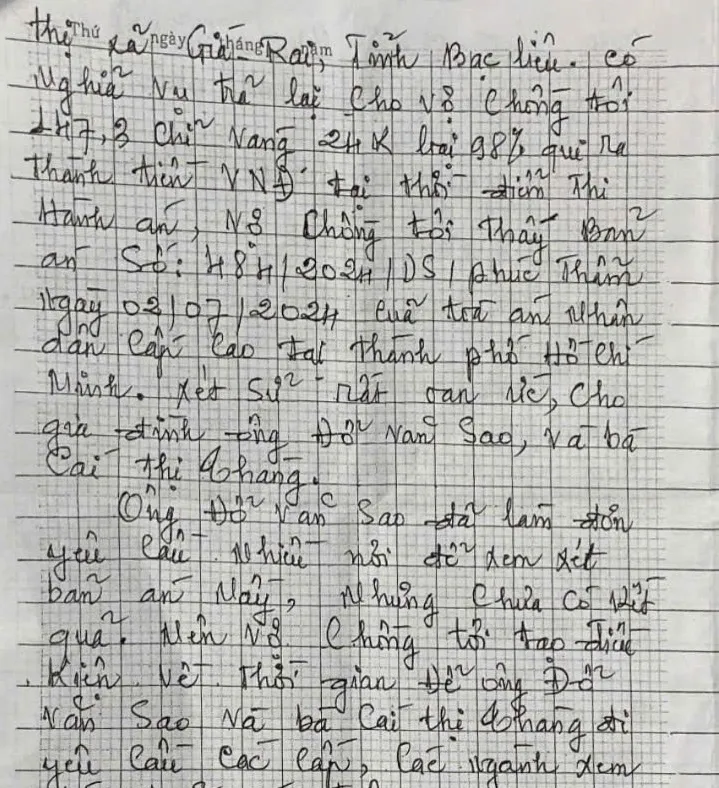 thị xã Giá Rai, Tỉnh Bạc Liêu. có
Thứ ngày tháng năm
Nghĩa vụ trả lại cho vợ chồng tôi
147,3 chỉ vàng 24K loại 98% qui ra
thành tiền VNĐ tại thời điểm Thi
Hành án, vợ chồng tôi thấy Bản
án Số: 484/2024/DS/phúc Thẩm
ngày 02/07/2024 của toà án Nhân
dân cấp cao tại thành phố Hồ Chí
Minh. xét sử rất oan ức, cho
gia đình ông Đỗ Văn Sao, và bà
Cai thị Khang.
Ông Đỗ Văn Sao đã làm đơn
yêu cầu Nhiều nơi để xem xét
bản án Nầy, Nhưng Chưa có kết
quả. Nên vợ chồng tôi tạo điều
kiện về Thời gian Để ông Đỗ
Văn Sao và bà Cai thị Khang đi
yêu cầu các cấp, các ngành xem